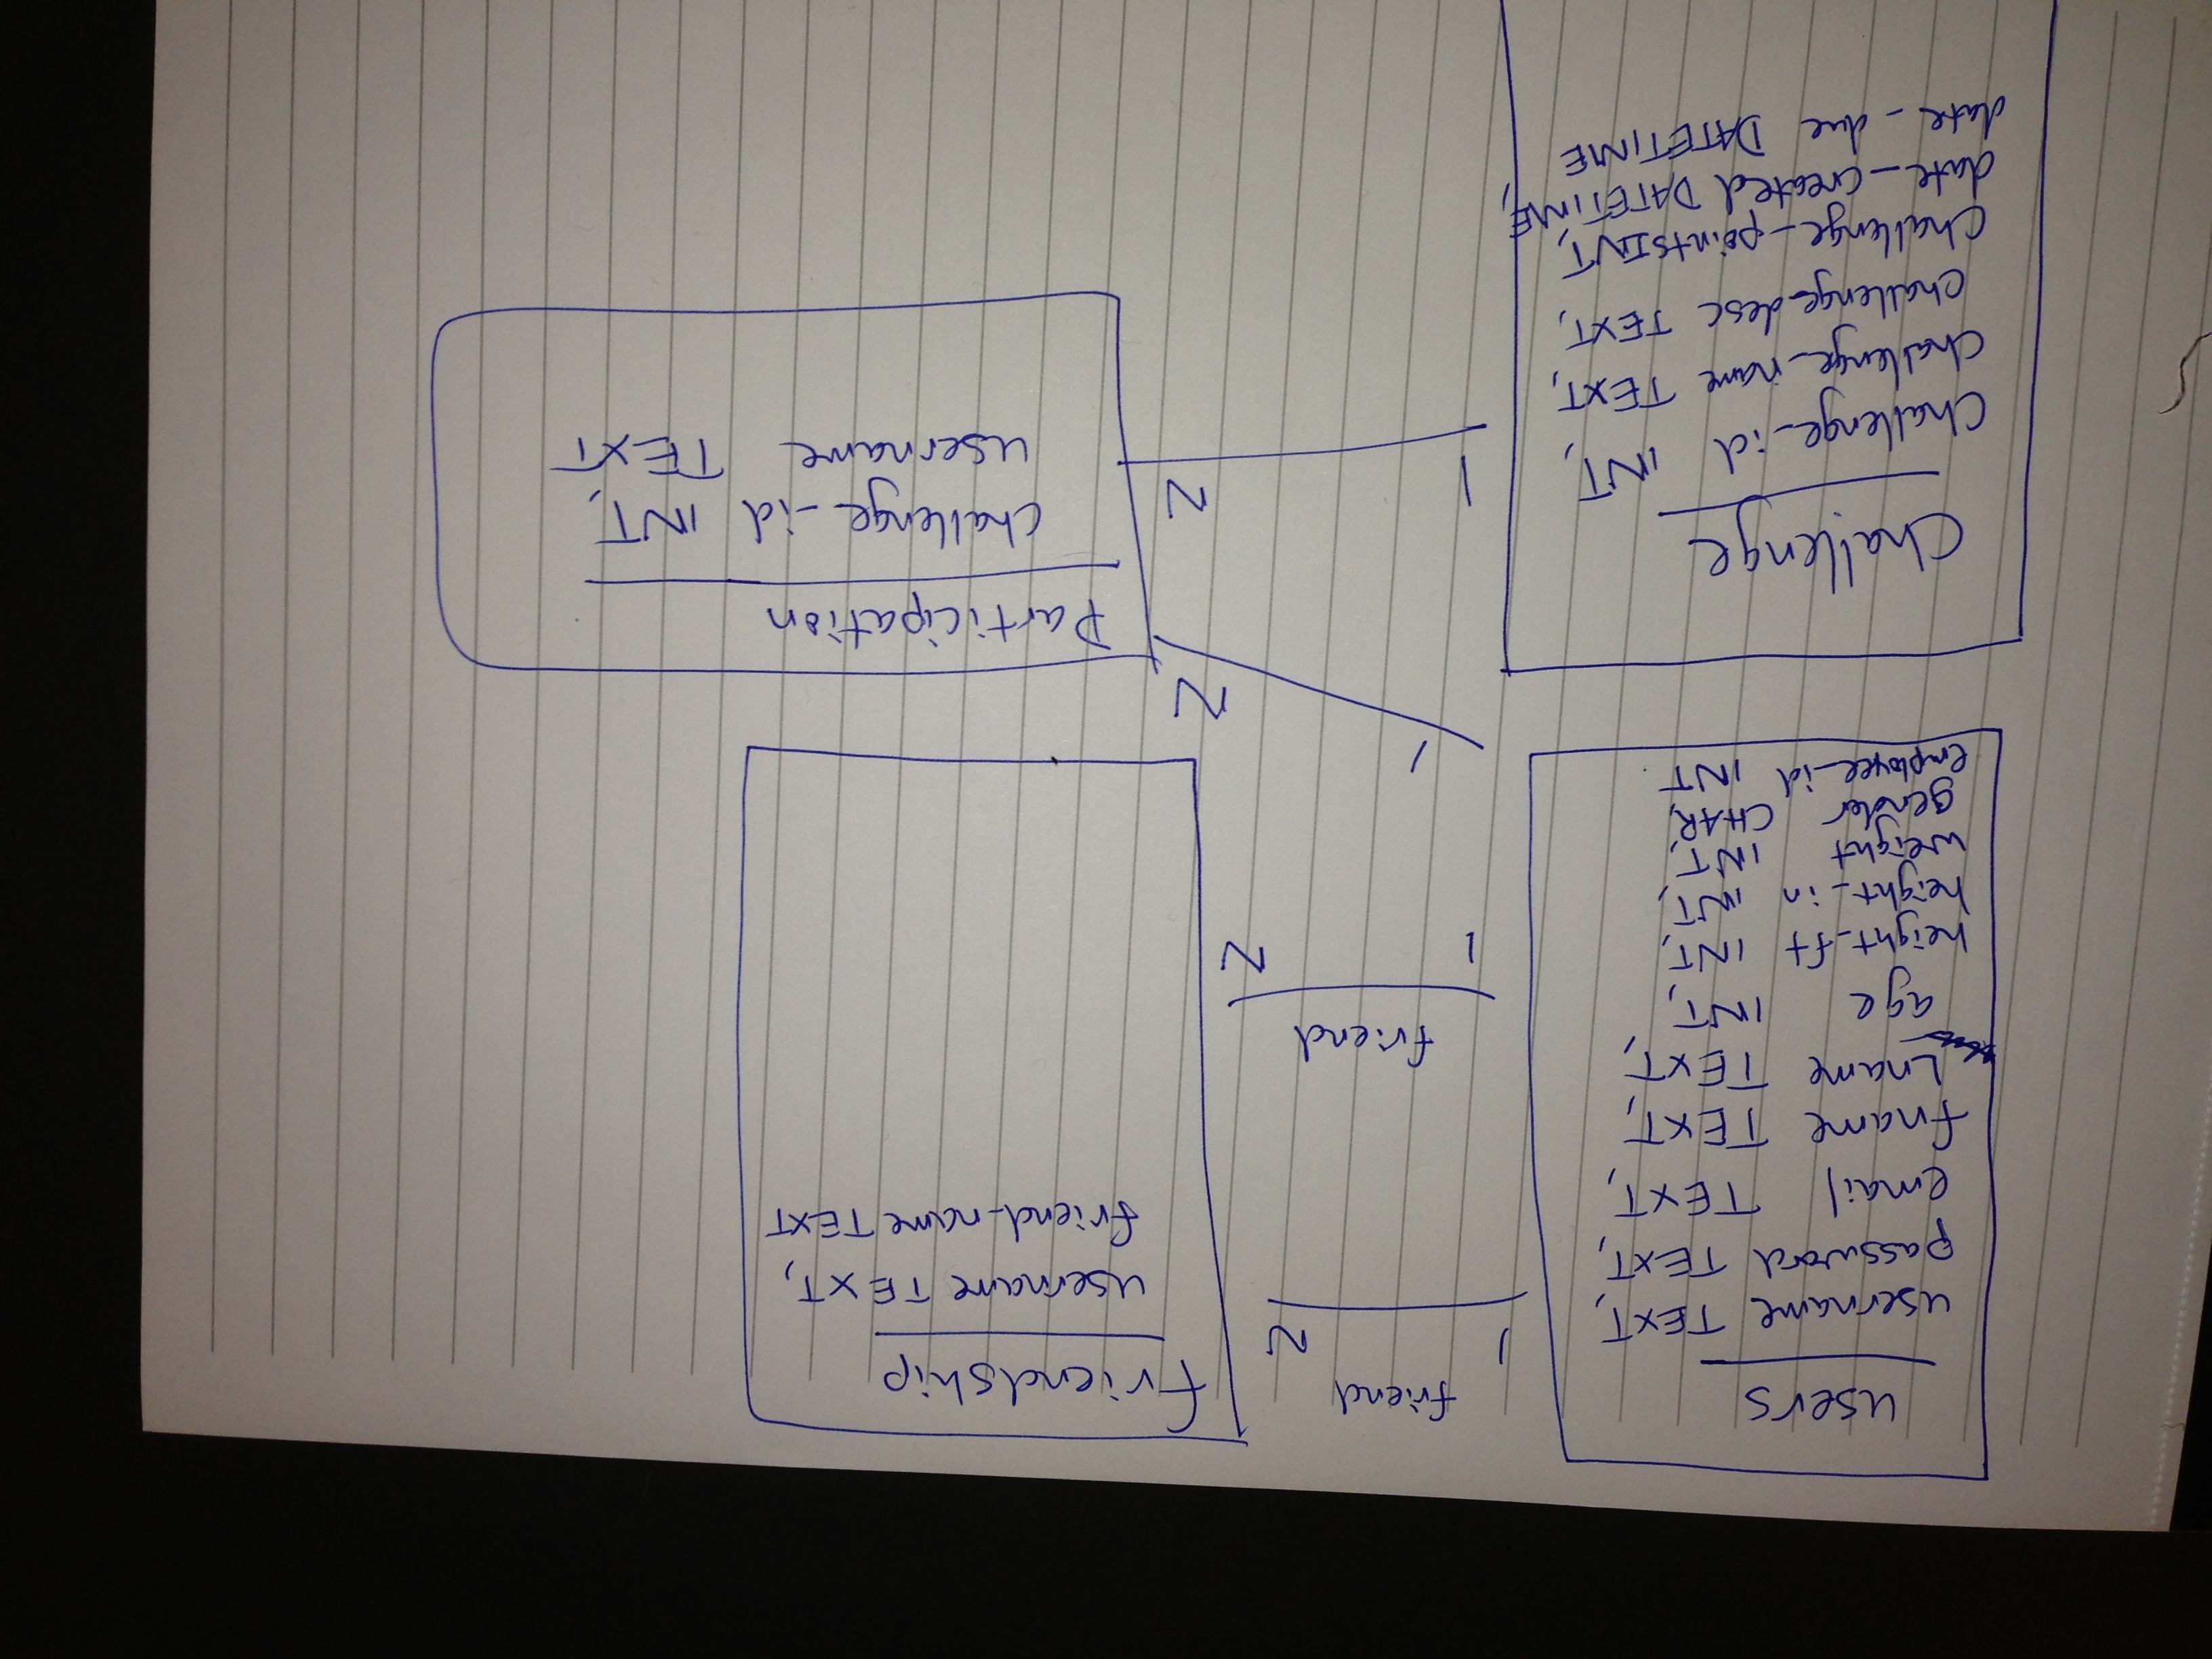 users
username TEXT,
password TEXT,
email TEXT,
fname TEXT,
Lname TEXT,
age INT,
height_ft INT,
height_in INT,
weight INT,
gender CHAR,
employee_id INT.
friend
1 N
friend
1 N
friendship
username TEXT,
friend_name TEXT
1 N
Challenge
Challenge_id INT,
Challenge_name TEXT,
Challenge_desc TEXT,
Challenge_points INT,
date_created DATETIME,
date_due DATETIME
1 N
Participation
Challenge_id INT,
username TEXT